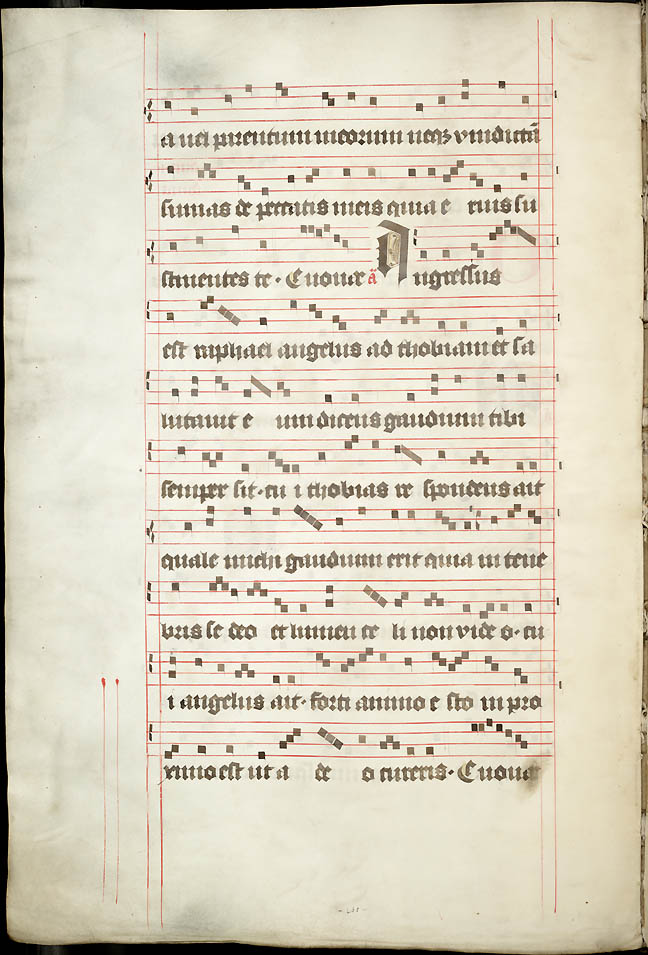 a uel parentum meorum neqȝ vindictā
sumas de peccatis meis quia e ruis su
stinentes te · Euouae ā Ingressus
est raphael angelus ad thobiam et sa
lutauit e um dicens gaudium tibi
semper sit · cu i thobias re spondens ait
quale michi gaudium erit quia in tene
bris se deo et lumen ce li non vide o · cu
i angelus ait · forti animo e sto in pro
ximo est ut a de o cureris · Euouae